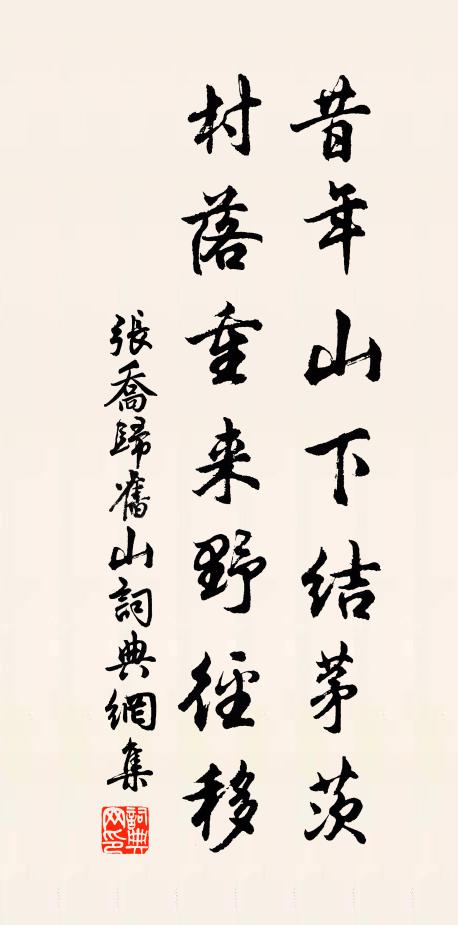 昔年山下结茅茨
村落重来野径移
張喬歸舊山詞典網集
詞典网印